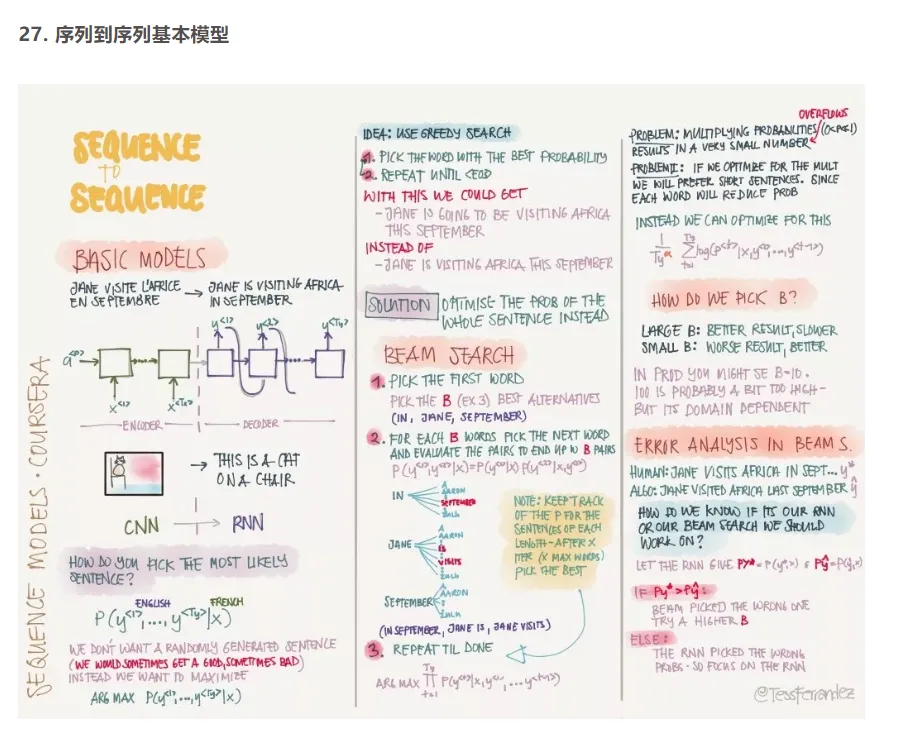 27. 序列到序列基本模型
SEQUENCE
TO
SEQUENCE
BASIC MODELS
JANE VISITE L'AFRICE
EN SEPTEMBRE
→ JANE IS VISITING AFRICA
IN SEPTEMBER
y<1> y<2> y<Ty>
a<0>
x<1> x<Tx>
ENCODER
DECODER
→ THIS IS A CAT
ON A CHAIR
CNN → RNN
HOW DO YOU PICK THE MOST LIKELY
SENTENCE?
ENGLISH FRENCH
P(y<1>,...,y<Ty>|x)
WE DON'T WANT A RANDOMLY GENERATED SENTENCE
(WE WOULD SOMETIMES GET A GOOD, SOMETIMES BAD)
INSTEAD WE WANT TO MAXIMIZE
ARG MAX P(y<1>,...,y<Ty>|x)
SEQUENCE MODELS · COURSERA
IDEA: USE GREEDY SEARCH
1. PICK THE WORD WITH THE BEST PROBABILITY
2. REPEAT UNTIL <EOD
WITH THIS WE COULD GET
- JANE IS GOING TO BE VISITING AFRICA
THIS SEPTEMBER
INSTEAD OF
- JANE IS VISITING AFRICA THIS SEPTEMBER
SOLUTION
OPTIMISE THE PROB OF THE
WHOLE SENTENCE INSTEAD
BEAM SEARCH
1. PICK THE FIRST WORD
PICK THE B (EX 3) BEST ALTERNATIVES
(IN, JANE, SEPTEMBER)
2. FOR EACH B WORDS PICK THE NEXT WORD
AND EVALUATE THE PAIRS TO END UP W B PAIRS
P(y<1>,y<2>|x)=P(y<1>|x)P(y<2>|x,y<1>)
IN
A
AARON
SEPTEMBER
ZULU
JANE
A
AARON
IS
VISITS
ZULU
SEPTEMBER
A
AARON
ZULU
NOTE: KEEP TRACK
OF THE P FOR THE
SENTENCES OF EACH
LENGTH-AFTER X
ITER (X MAX WORDS)
PICK THE BEST
(IN SEPTEMBER, JANE IS, JANE VISITS)
3. REPEAT TIL DONE
ARG MAX
Ty
∏
t=1
P(y<t>|x,y<1>,...y<t-1>)
OVERFLOWS
PROBLEM: MULTIPLYING PROBABILITIES (0<P<1)
RESULTS IN A VERY SMALL NUMBER
PROBLEM II: IF WE OPTIMIZE FOR THE MULT
WE WILL PREFER SHORT SENTENCES. SINCE
EACH WORD WILL REDUCE PROB
INSTEAD WE CAN OPTIMIZE FOR THIS
1/Ty^α
Ty
∑
t=1
log(P<t>|x,y<1>,...,y<t-1>)
HOW DO WE PICK B?
LARGE B: BETTER RESULT, SLOWER
SMALL B: WORSE RESULT, BETTER
IN PROD YOU MIGHT SE B=10.
100 IS PROBABLY A BIT TOO HIGH-
BUT ITS DOMAIN DEPENDENT
ERROR ANALYSIS IN BEAM S.
HUMAN: JANE VISITS AFRICA IN SEPT... y*
ALGO: JANE VISITED AFRICA LAST SEPTEMBER ŷ
HOW DO WE KNOW IF ITS OUR RNN
OR OUR BEAM SEARCH WE SHOULD
WORK ON?
LET THE RNN GIVE Py*=P(y*|x) & Pŷ=P(ŷ|x)
IF Py* > Pŷ:
BEAM PICKED THE WRONG ONE
TRY A HIGHER B
ELSE:
THE RNN PICKED THE WRONG
PROBS - SO FOCUS ON THE RNN
@TessFerrandez